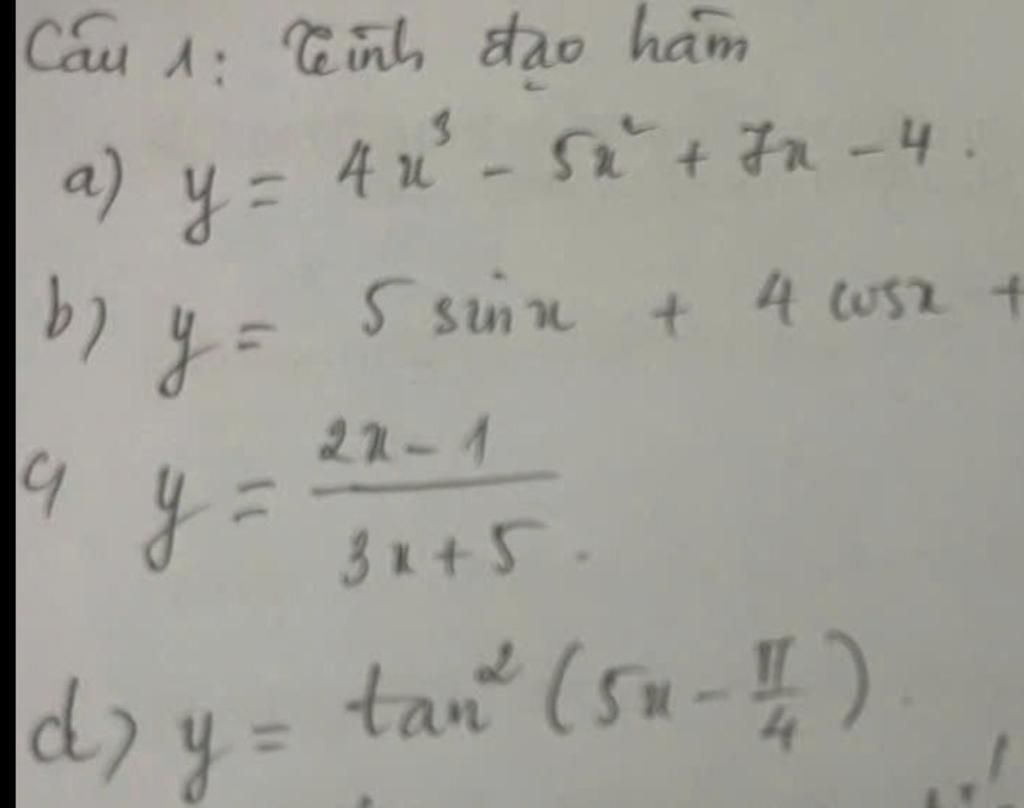 Câu 1: Tính đạo hàm
a) y = 4x³ - 5x² + 7x - 4.
b) y = 5 sinx + 4 cosx +
c) y = (2x - 1)/(3x + 5).
d) y = tan² (5x - π/4).